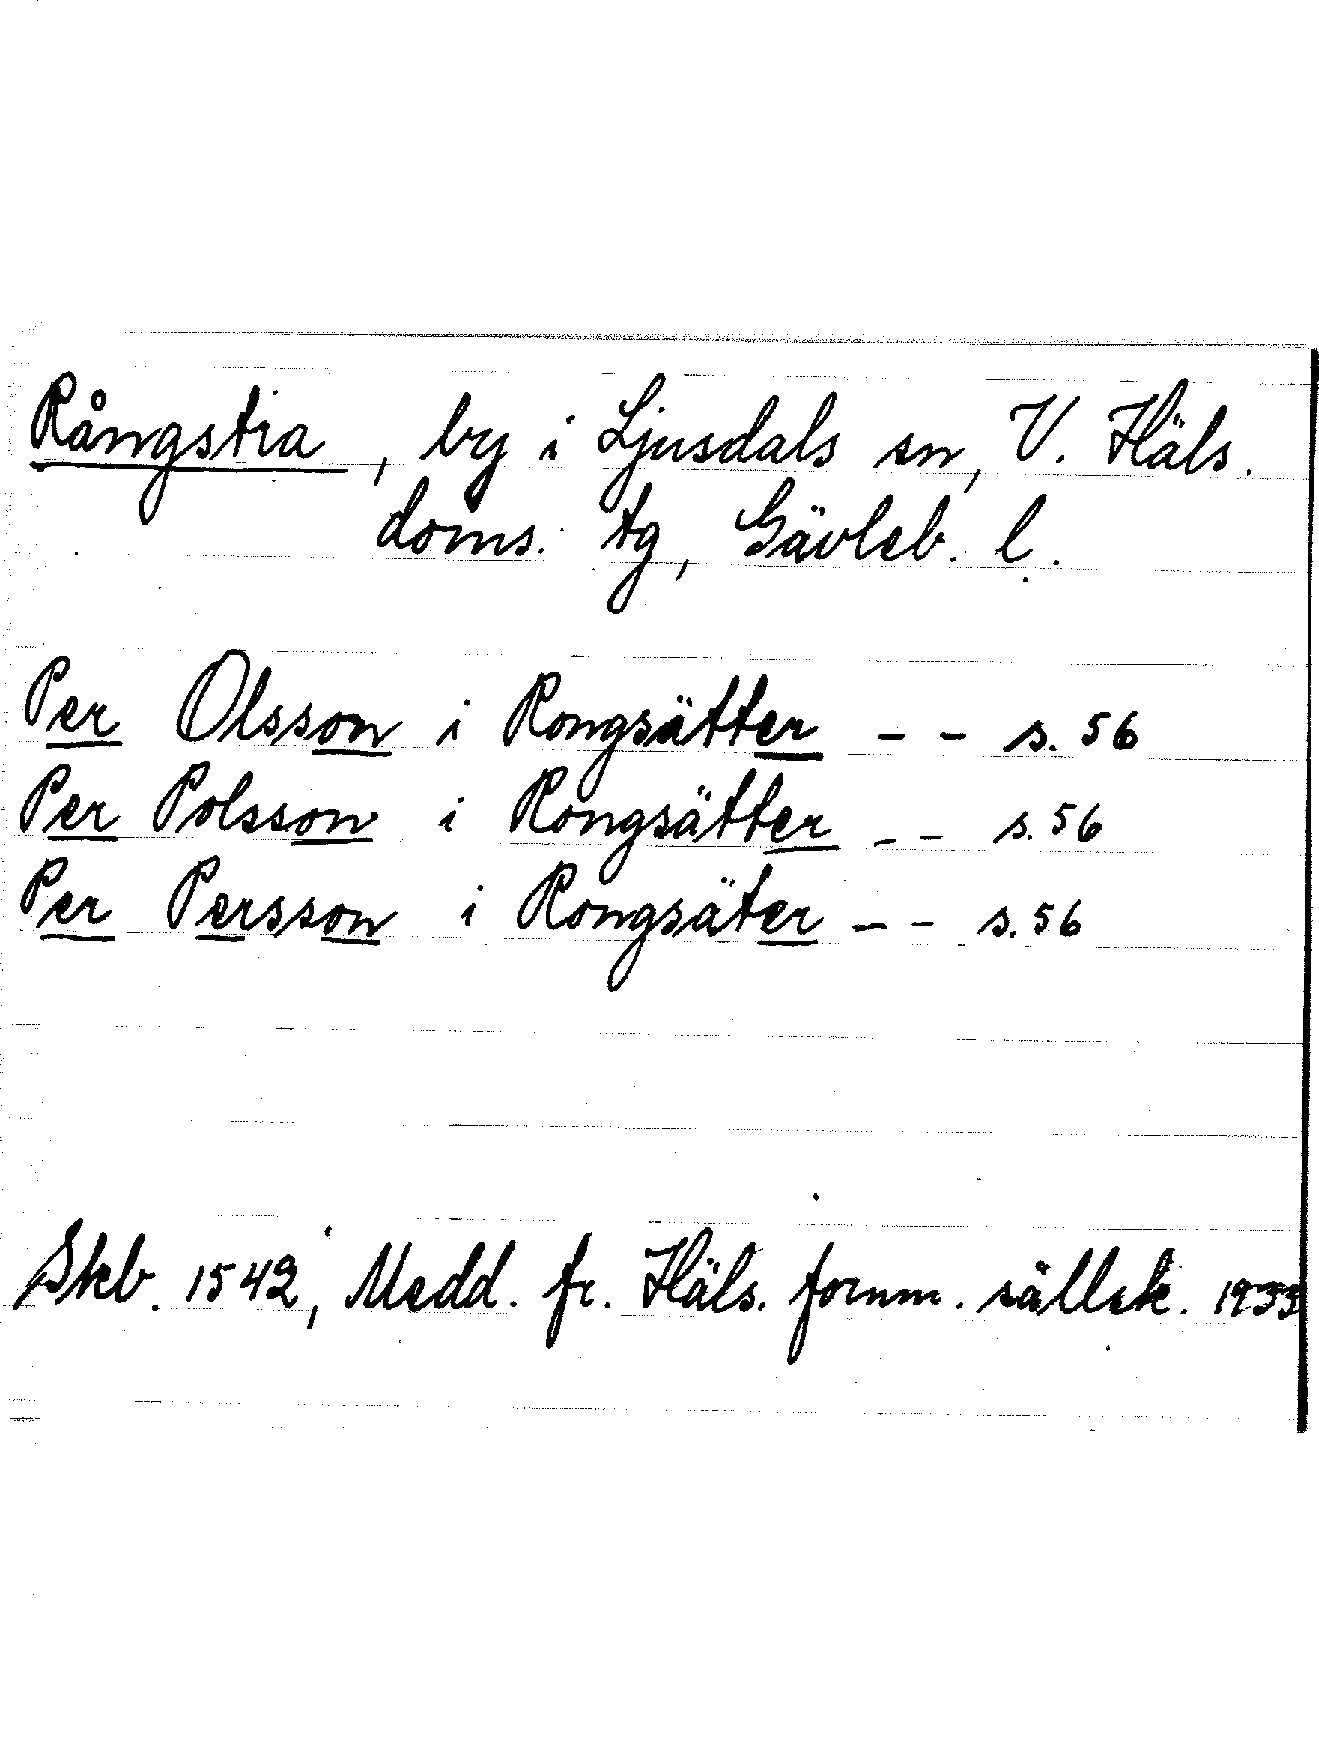 Rångstra, by i Ljusdals sn, V. Häls.
doms. tg, Gävleb. l.
Per Olsson i Rongsätter - - s. 56
Per Polsson i Rongsätter - - s. 56
Per Persson i Rongsäter - - s. 56
Skb. 1542, Medd. fr. Häls. fornm. sällsk. 1933